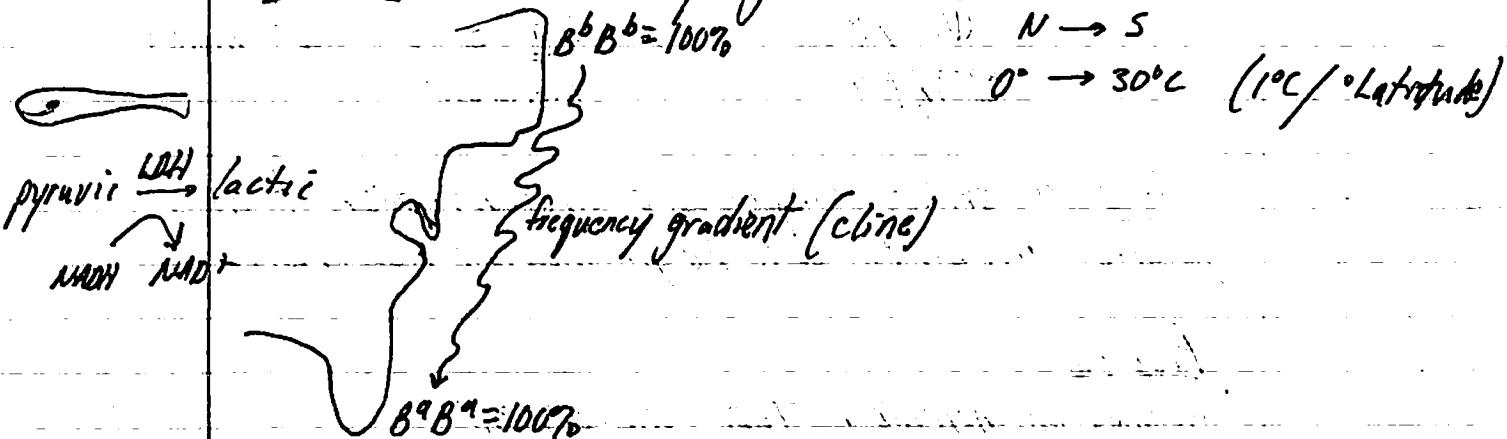 B^b B^b = 100%
N → S
0° → 30°C (1°C/°Latitude)
pyruvic LDH → lactic
NADH NAD+
frequency gradient (cline)
B^a B^a = 100%